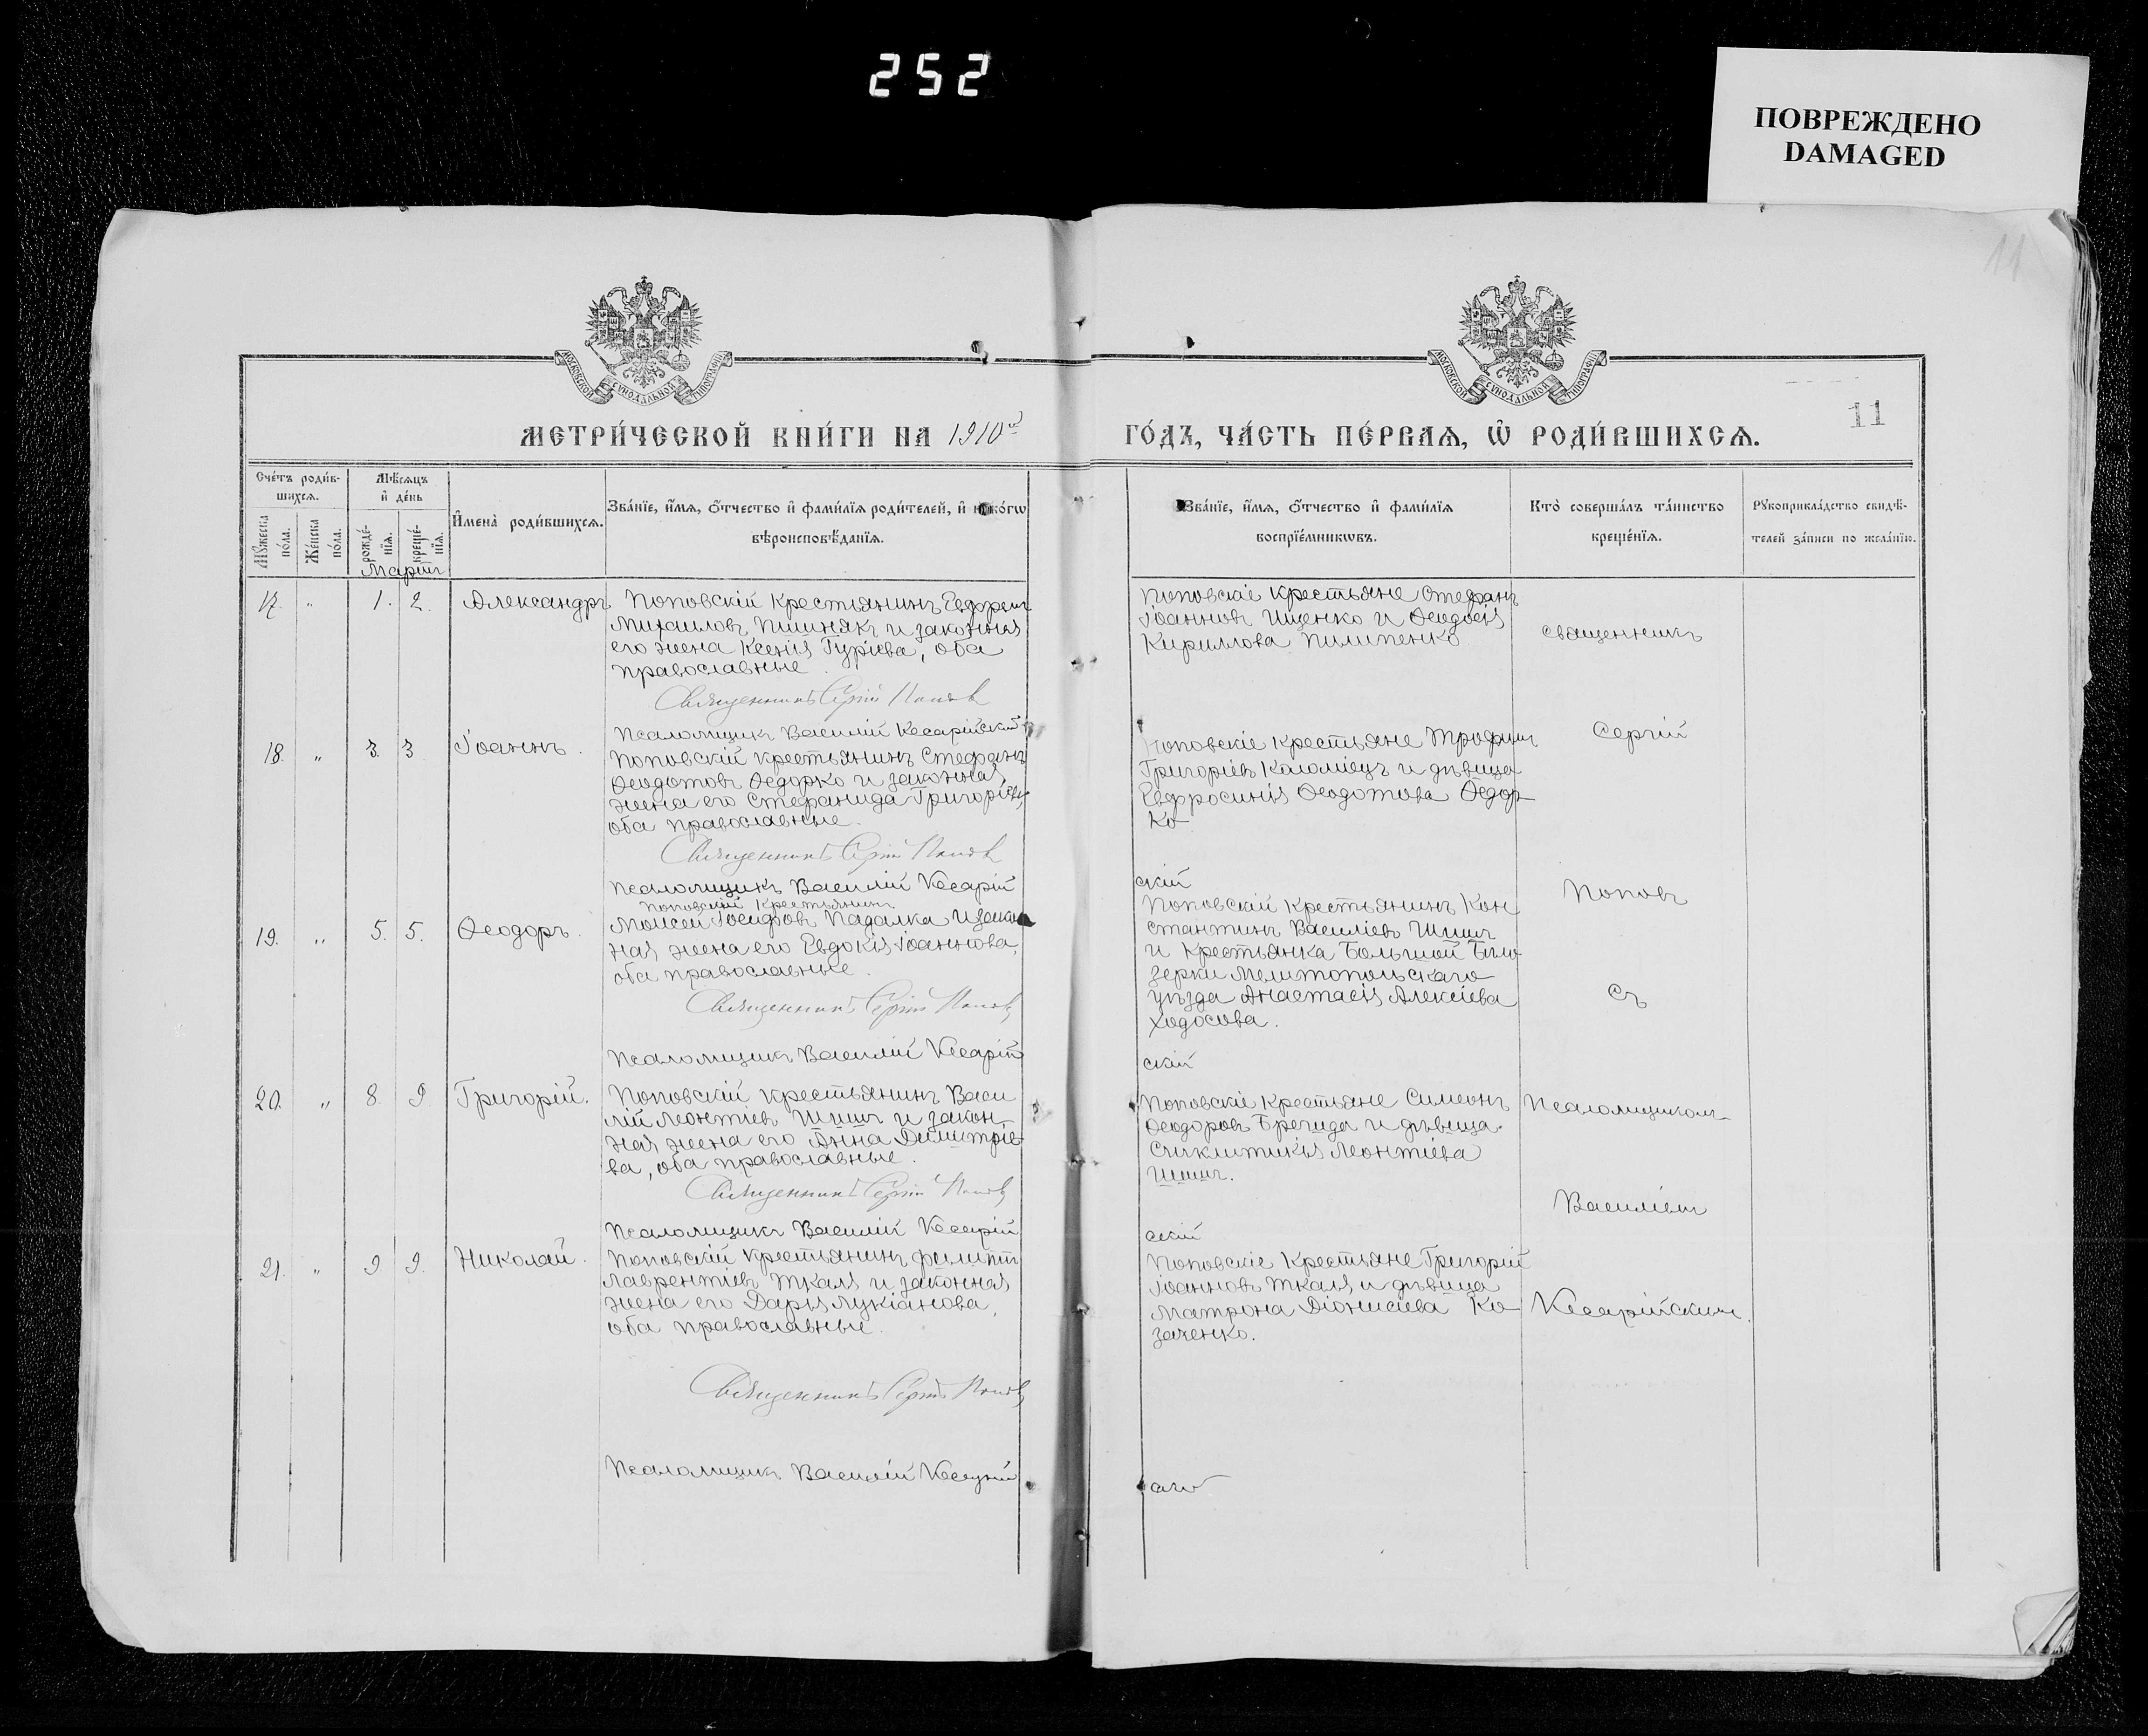 252
ПОВРЕЖДЕНО
DAMAGED
11
МОСКОВСКОЙ СУНОДАЛЬНОЙ ТИПОГРАФІИ
МОСКОВСКОЙ СУНОДАЛЬНОЙ ТИПОГРАФІИ
11
МЕТРИ́ЧЕСКОЙ КНИ́ГИ НА 1910й
ГО́ДЪ, ЧА́СТЬ ПЕ́РВАѦ, Ѡ҆ РОДИ́ВШИХСѦ.
Сче́тъ роди́в-
шихсѧ.
Мѣ́сѧцъ
и҆ де́нь
Мꙋ́жеска
по́ла.
Же́нска
по́ла.
рожде́-
нїѧ.
креще́-
нїѧ.
И҆мена̀ роди́вшихсѧ.
Зва́нїе, и҆́мѧ, ѻ҆́тчество и҆ фамилїѧ роди́телей, и҆ како́гѡ
вѣроисповѣ́данїѧ.
Зва́нїе, и҆́мѧ, ѻ҆́тчество и҆ фами́лїѧ
воспрїе́мникѡвъ.
Кто̀ соверша́лъ та́инство
креще́нїѧ.
Рꙋкоприкла́дство свидѣ́-
телей за́писи по жела́нїю.
Мартъ
17. " 1. 2. Александръ
Поповскій крестьянинъ Евфрем
Михаиловъ Пшинякъ и законная
его жена Ксенія Гуріева, оба
православные.
Священникъ Сергій Поповъ
Псаломщикъ Василій Кесарійскій
Поповскіе крестьяне Стефанъ
Іоанновъ Ищенко и Ѳеодосія
Кириллова Пилипенко
священникъ
18. " 3. 3. Іоаннъ.
Поповскій крестьянинъ Стефанъ
Ѳеодотовъ Ѳедорко и законная
жена его Стефанида Григоріева
оба православные.
Священникъ Сергій Поповъ
Псаломщикъ Василій Кесарій
скій
Поповскіе крестьяне Трофим
Григоріевъ Коломіецъ и дѣвица
Евфросинія Ѳеодотова Ѳедор-
ко
Сергій
19. " 5. 5. Ѳеодоръ.
Поповскій крестьянинъ
Моисей Іосифовъ Падалка и закон
ная жена его Евдокія Іоаннова,
оба православные.
Священникъ Сергій Поповъ
Псаломщикъ Василій Кесарій
скій
Поповскій крестьянинъ Кон
стантинъ Василіевъ Шишъ
и крестьянка Большой Бѣло
зерки Мелитопольскаго
уѣзда Анастасія Алексіева
Ходосова.
Поповъ
съ
20. " 8. 9. Григорій.
Поповскій крестьянинъ Васи
лій Леонтіевъ Шишъ и закон-
ная жена его Анна Димитріе
ва, оба православные.
Священникъ Сергій Поповъ
Псаломщикъ Василій Кесарій
скій
Поповскіе крестьяне Симеонъ
Ѳеодоровъ Брегида и дѣвица
Синклитикія Леонтіева
Шишъ.
Псаломщикомъ
Василіем
21. " 9. 9. Николай.
Поповскій крестьянинъ Филипп
Лаврентіевъ Ткаля и законная
жена его Дарья Лукіанова,
оба православные.
Священникъ Сергій Поповъ
Псаломщикъ Василій
Поповскіе крестьяне Григорій
Іоанновъ Ткаля и дѣвица
Матрона Діонисіева Ко
заченко.
Кесарійским.